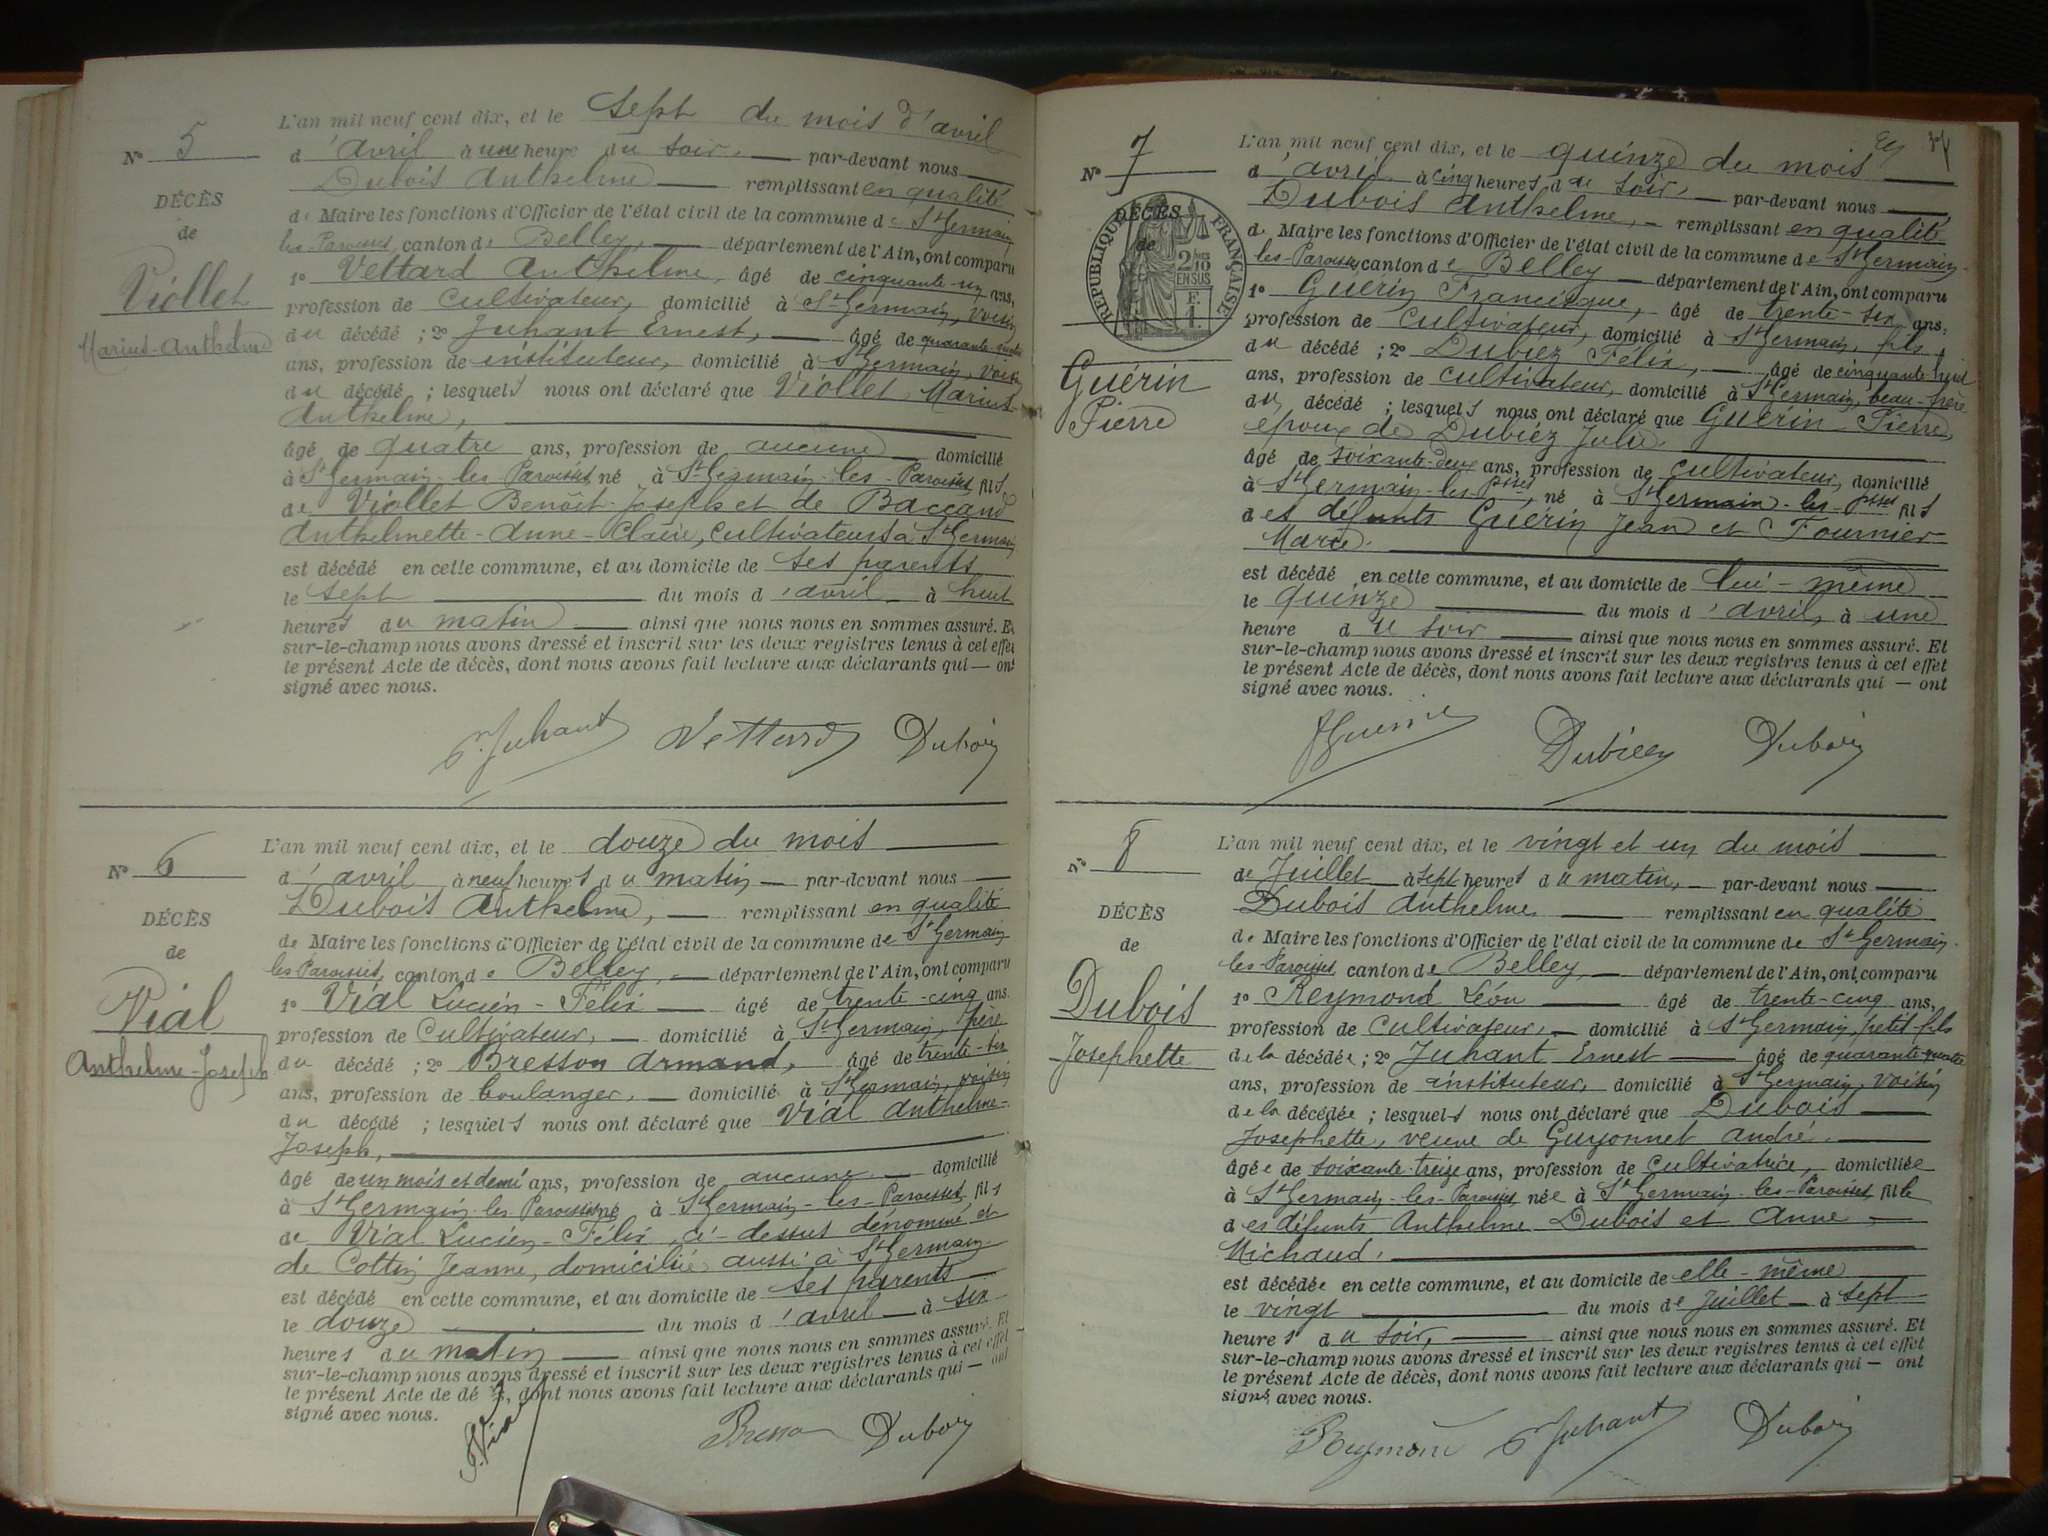 N° 5
DÉCÈS
de
Viollet
Marius-Anthelme
L'an mil neuf cent dix, et le sept du mois d'avril
d'avril à une heure du soir, par-devant nous
Dubois Anthelme remplissant en qualité
de Maire les fonctions d'Officier de l'état civil de la commune de St Germain
les-Paroisses, canton de Belley, département de l'Ain, ont comparu
1° Vettard Anthelme, âgé de cinquante-un ans,
profession de cultivateur, domicilié à St Germain, voisin
du décédé ; 2° Juhant Ernest, âgé de quarante-quatre
ans, profession de instituteur, domicilié à St Germain, voisin
du décédé ; lesquels nous ont déclaré que Viollet Marius-
Anthelme,
âgé de quatre ans, profession de aucune domicilié
à St Germain-les-Paroisses, né à St Germain-les-Paroisses, fils
de Viollet Benoît-Joseph et de Baccand
Anthelmette-Anne-Claire, cultivateurs à St Germain
est décédé en cette commune, et au domicile de ses parents
le sept du mois d'avril à huit
heures du matin ainsi que nous nous en sommes assuré. Et
sur-le-champ nous avons dressé et inscrit sur les deux registres tenus à cet effet
le présent Acte de décès, dont nous avons fait lecture aux déclarants qui — ont
signé avec nous.
Juhant Vettard Dubois
N° 6
DÉCÈS
de
Vial
Anthelme-Joseph
L'an mil neuf cent dix, et le douze du mois
d'avril à neuf heures du matin par-devant nous
Dubois Anthelme, remplissant en qualité
de Maire les fonctions d'Officier de l'état civil de la commune de St Germain
les Paroisses, canton de Belley, département de l'Ain, ont comparu
1° Vial Lucien-Félix âgé de trente-cinq ans.
profession de Cultivateur, domicilié à St Germain, père
du décédé ; 2° Bresson Armand, âgé de trente-six
ans, profession de boulanger, domicilié à St Germain, voisin
du décédé ; lesquels nous ont déclaré que Vial Anthelme-
Joseph,
âgé de un mois et demi ans, profession de aucune domicilié
à St Germain-les-Paroisses né à St Germain-les-Paroisses, fils
de Vial Lucien-Félix, ci-dessus dénommé et
de Cottin Jeanne, domiciliée aussi à St Germain
est décédé en cette commune, et au domicile de ses parents
le douze du mois d'avril à six
heures du matin ainsi que nous nous en sommes assuré. Et
sur-le-champ nous avons dressé et inscrit sur les deux registres tenus à cet effet
le présent Acte de décès, dont nous avons fait lecture aux déclarants qui — ont
signé avec nous.
F. Vial Bresson Dubois
N° 7
DÉCÈS
de
RÉPUBLIQUE FRANÇAISE
2/10
EN SUS
F.
1.
Guérin
Pierre
L'an mil neuf cent dix, et le quinze du mois
d'avril à cinq heures du soir, par-devant nous
Dubois Anthelme, remplissant en qualité
de Maire les fonctions d'Officier de l'état civil de la commune de St Germain-
les-Paroisses, canton de Belley département de l'Ain, ont comparu
1° Guérin Francisque, âgé de trente-six ans,
profession de cultivateur, domicilié à St Germain, fils
du décédé ; 2° Dubiez Félix, âgé de cinquante-huit
ans, profession de cultivateur, domicilié à St Germain, beau-frère
du décédé ; lesquels nous ont déclaré que Guérin Pierre,
époux de Dubiez Julie,
âgé de soixante-deux ans, profession de cultivateur, domicilié
à St Germain-les-Psses, né à St Germain-les-Psses fils
des défunts Guérin Jean et Fournier
Marie.
est décédé en cette commune, et au domicile de lui-même
le quinze du mois d'avril, à une
heure du soir ainsi que nous nous en sommes assuré. Et
sur-le-champ nous avons dressé et inscrit sur les deux registres tenus à cet effet
le présent Acte de décès, dont nous avons fait lecture aux déclarants qui — ont
signé avec nous.
FGuerin Dubiez Dubois
N° 8
DÉCÈS
de
Dubois
Josephette
L'an mil neuf cent dix, et le vingt et un du mois
de Juillet à sept heures du matin, par-devant nous
Dubois Anthelme remplissant en qualité
de Maire les fonctions d'Officier de l'état civil de la commune de St Germain-
les-Paroisses, canton de Belley, département de l'Ain, ont comparu
1° Reymond Léon âgé de trente-cinq ans,
profession de cultivateur, domicilié à St Germain, petit-fils
de la décédée ; 2° Juhant Ernest âgé de quarante-quatre
ans, profession de instituteur, domicilié à St Germain, voisin
de la décédée ; lesquels nous ont déclaré que Dubois
Josephette, veuve de Guyonnet André.
âgée de soixante-treize ans, profession de cultivatrice, domiciliée
à St Germain-les-Paroisses née à St Germain-les-Paroisses fille
des défunts Anthelme Dubois et Anne
Michaud.
est décédée en cette commune, et au domicile de elle-même
le vingt du mois de Juillet à sept
heures du soir, ainsi que nous nous en sommes assuré. Et
sur-le-champ nous avons dressé et inscrit sur les deux registres tenus à cet effet
le présent Acte de décès, dont nous avons fait lecture aux déclarants qui — ont
signé avec nous.
Reymond Juhant Dubois